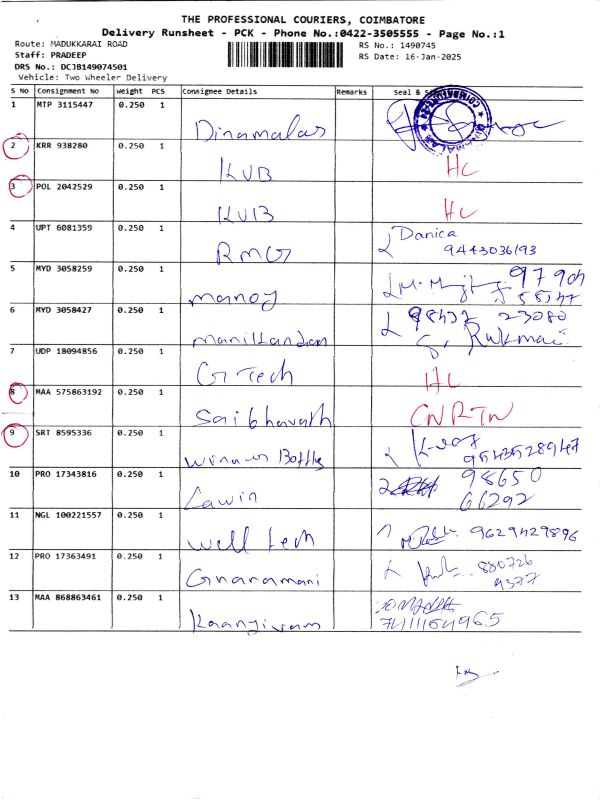 THE PROFESSIONAL COURIERS, COIMBATORE
Delivery Runsheet - PCK - Phone No.:0422-3505555 - Page No.:1
Route: MADUKKARAI ROAD
RS No.: 1490745
Staff: PRADEEP
RS Date: 16-Jan-2025
DRS No.: DCJB149074501
Vehicle: Two Wheeler Delivery
S No Consignment No Weight PCS Consignee Details Remarks Seal &
1 MTP 3115447 0.250 1
Dinamalar
2 KRR 938280 0.250 1
KVB HC
3 POL 2042529 0.250 1
KVB HC
4 UPT 6081359 0.250 1
RMG Danica
9443036193
5 MYD 3058259 0.250 1
Manoj
6 MYD 3058427 0.250 1
Manikandan 98437 23080
S. Rukmai
7 UDP 18094856 0.250 1
G Tech HC
8 MAA 575863192 0.250 1
Saibharath CNRTN
9 SRT 8595336 0.250 1
Winner Bottles 9543528947
10 PRO 17343816 0.250 1
Lawin 98650
66292
11 NGL 100221557 0.250 1
Well tech 9629429896
12 PRO 17363491 0.250 1
Gnanamani 880726
9377
13 MAA 868863461 0.250 1